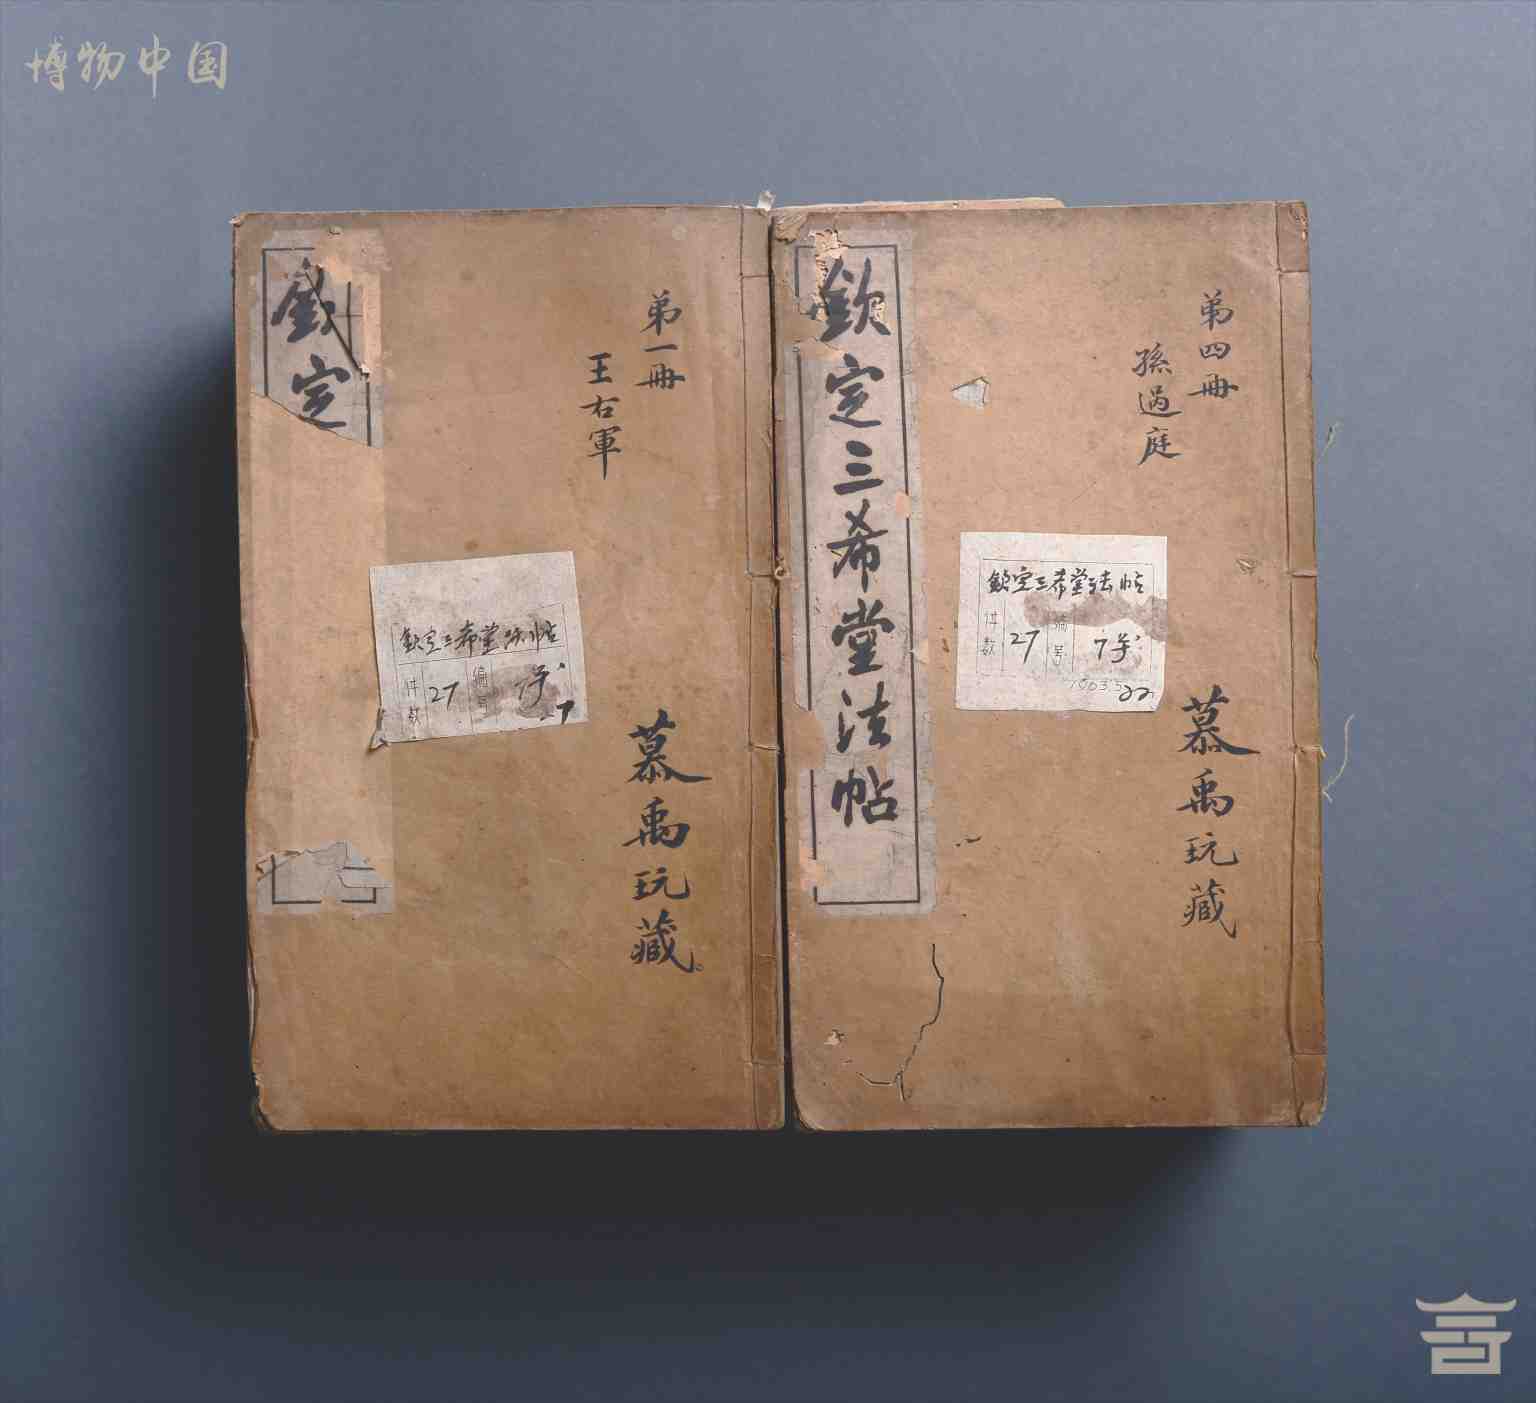 博物中国
第一冊
王右軍
慕禹玩藏
欽定
欽定三希堂法帖
件数 27 编号
7
第四冊
孫過庭
慕禹玩藏
欽定三希堂法帖
欽定三希堂法帖
件数 27 编号 7
22